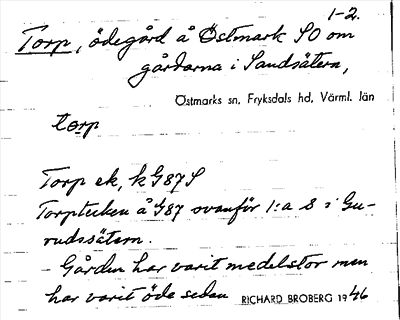 1-2.
Torp, ödegård å Östmark SO om
gårdarna i Sandsätern,
Östmarks sn, Fryksdals hd, Värml. län
torp
Torp ek, k G87S
Torptecken å G87 ovanför 1:a S i Gu-
rudssätern.
- Gården har varit medelstor men
har varit öde sedan RICHARD BROBERG 1946